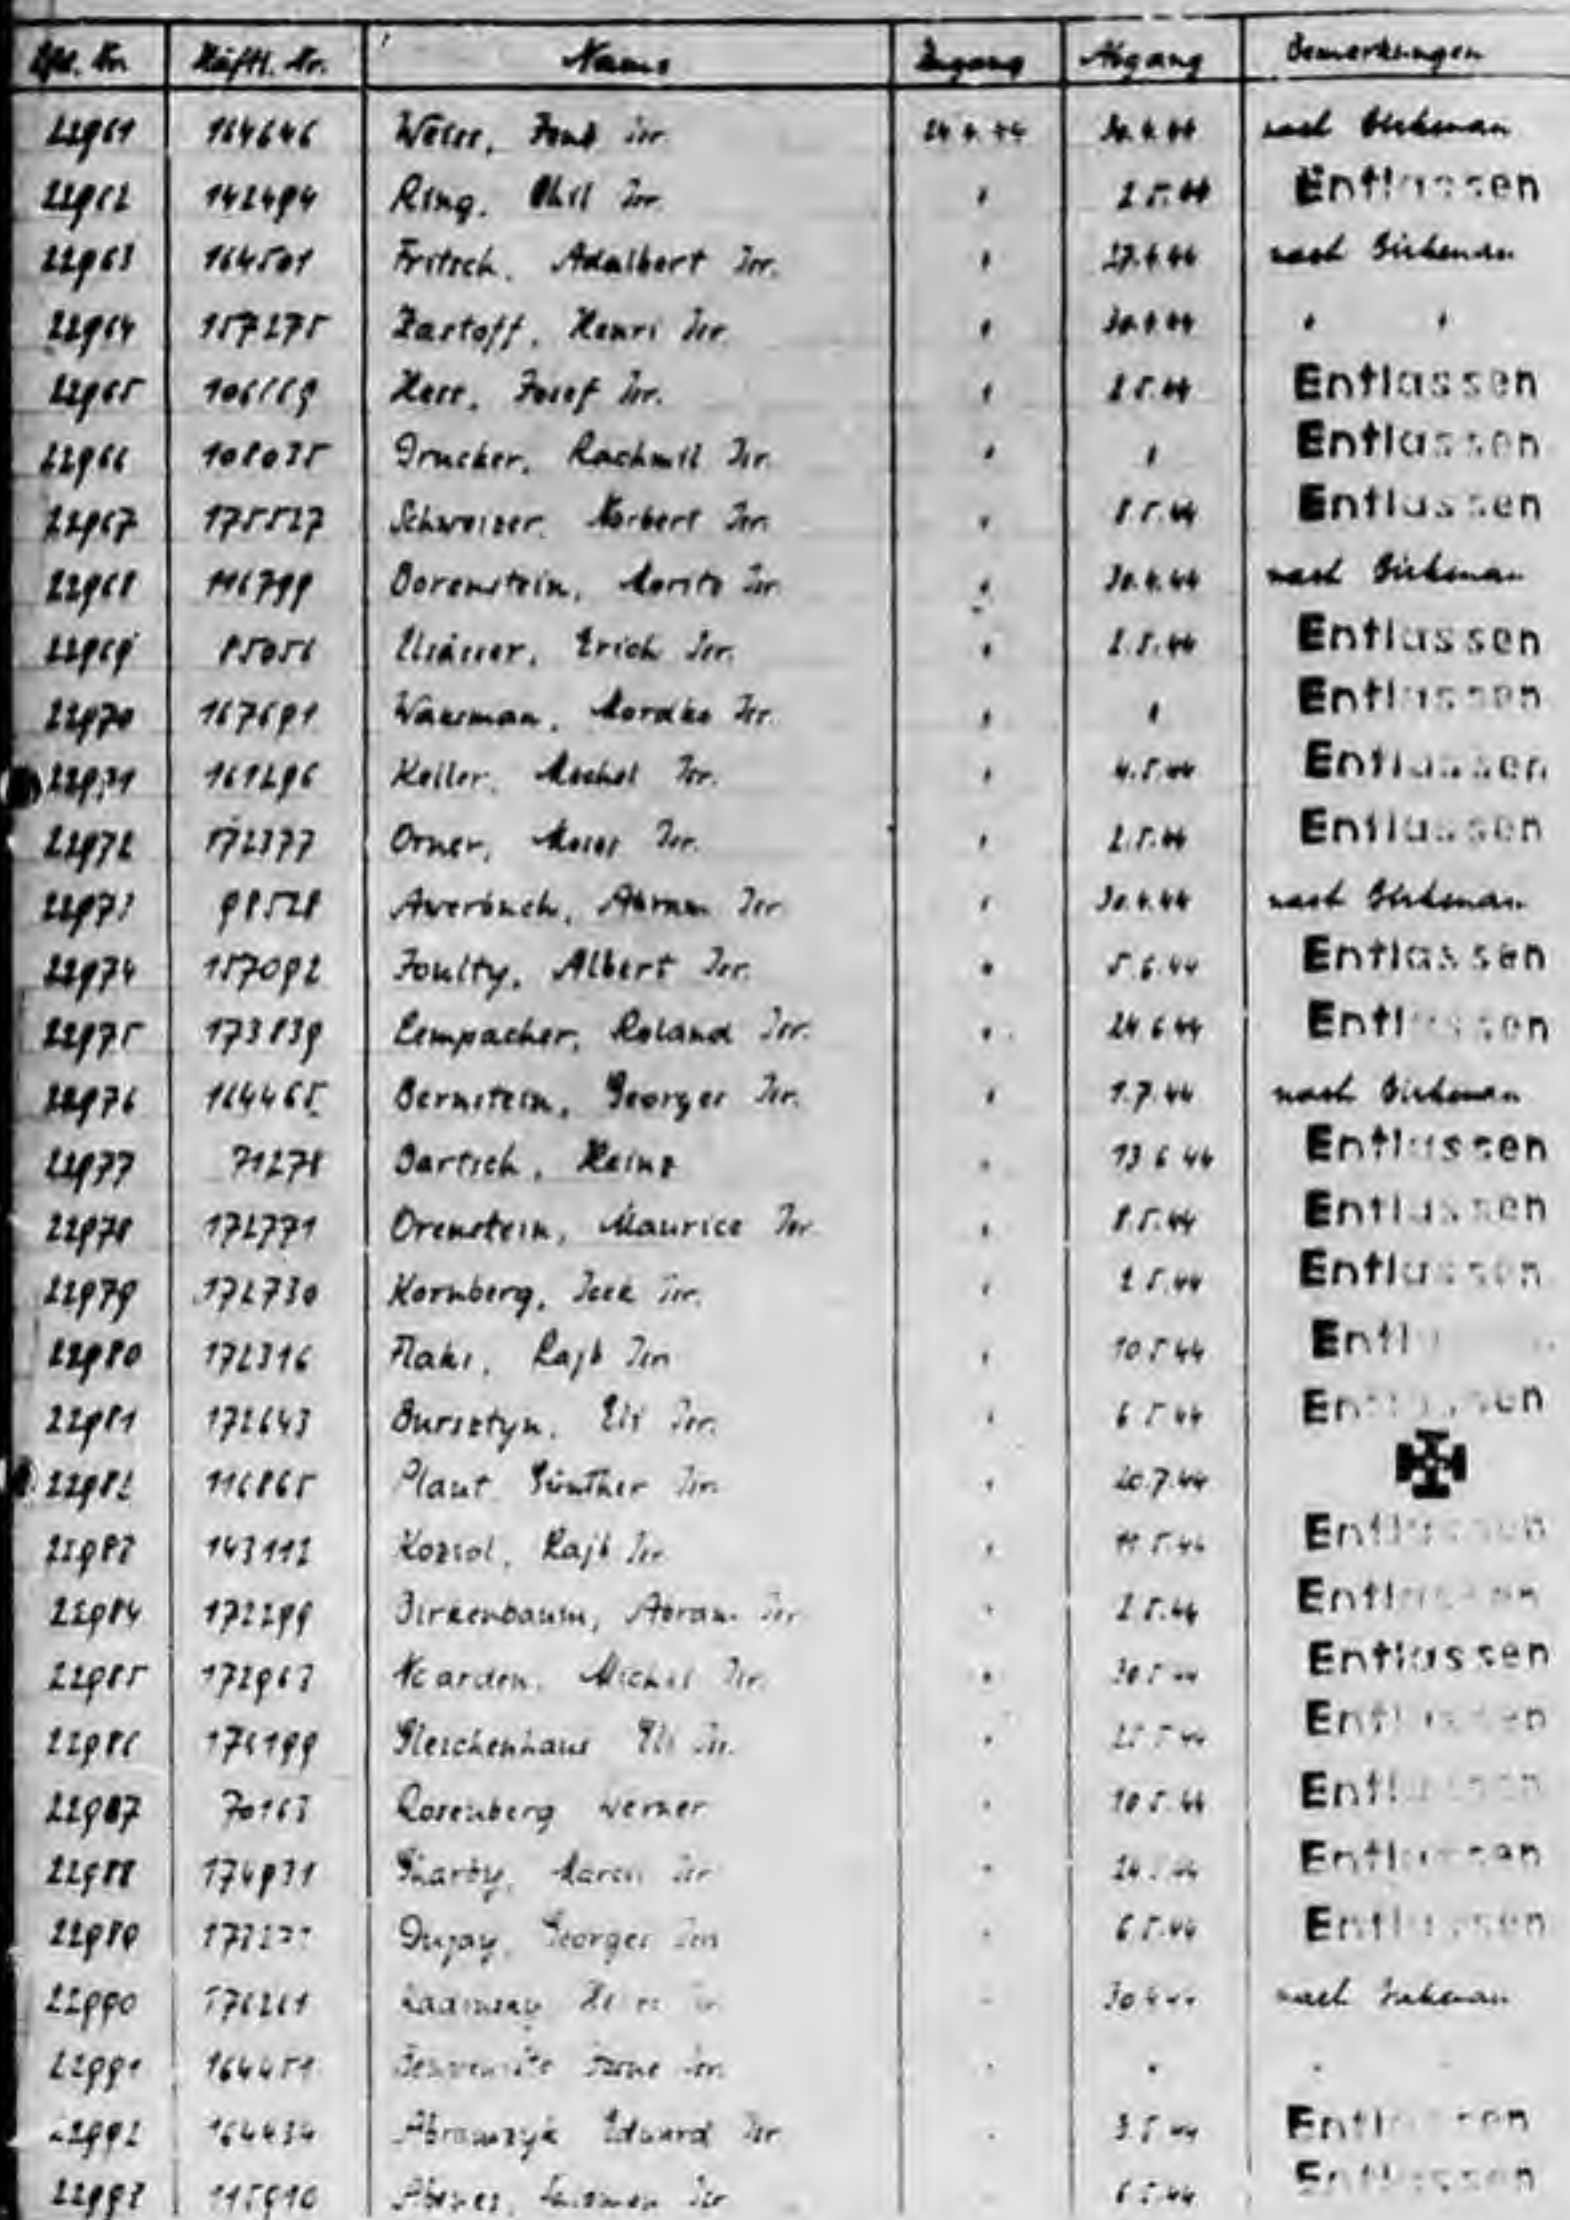 Lfd. Nr. Häftl. Nr. Name Zugang Abgang Bemerkungen
22961 164646 Weiss, Isr. 24.4.44 30.4.44 nach Birkenau
22962 142494 Ring, Chil Isr. " 2.5.44 Entlassen
22963 164501 Fritsch, Adalbert Isr. " 27.4.44 nach Birkenau
22964 157275 Zastoff, Henri Isr. " 30.4.44 " "
22965 Herr, Josef Isr. " 2.5.44 Entlassen
22966 108035 Drucker, Rachmil Isr. " " Entlassen
22967 175527 Schweizer, Norbert Isr. " 8.5.44 Entlassen
22968 116799 Borenstein, Moritz Isr. " 30.4.44 nach Birkenau
22969 85056 Elsässer, Erich Isr. " 2.5.44 Entlassen
22970 167691 Waksman, Mordko Isr. " " Entlassen
22971 161296 Keller, Mechel Isr. " 4.5.44 Entlassen
22972 172377 Orner, Moses Isr. " 2.5.44 Entlassen
22973 98528 Awerbuch, Abram Isr. " 30.4.44 nach Birkenau
22974 157092 Foulty, Albert Isr. " 5.6.44 Entlassen
22975 173839 Lempacher, Roland Isr. " 24.6.44 Entlassen
22976 164465 Bernstein, Georges Isr. " 1.7.44 nach Birkenau
22977 71278 Bartsch, Heinz " 13.6.44 Entlassen
22978 172771 Orenstein, Maurice Isr. " 8.5.44 Entlassen
22979 172730 Kornberg, Icek Isr. " 2.5.44 Entlassen
22980 172316 Flaks, Lajb Isr. " 10.5.44 Entl
22981 172643 Bursztyn, Eli Isr. " 6.5.44 Entlassen
22982 116865 Plaut, Günther Isr. " 20.7.44
22983 143112 Koziol, Lajb Isr. " 11.5.44 Entlassen
22984 172299 Birkenbaum, Abram Isr. " 2.5.44 Entlassen
22985 172963 Michel Isr. " 30.5.44 Entlassen
22986 176199 Gleichenhaus Eli Isr. " 44 Entlassen
22987 70163 Rosenberg Werner " 10.5.44 Entlassen
22988 174931 Isr. " 44 Entlassen
22989 Dujay, Georges Isr. " 6.5.44 Entlassen
22990 176261 Isr. " 30.4.44 nach Birkenau
22991 164451 Isr. " " "
22992 164434 Abramczyk Edward Isr. " 3.5.44 Entlassen
22993 115910 Isr. 6.5.44 Entlassen